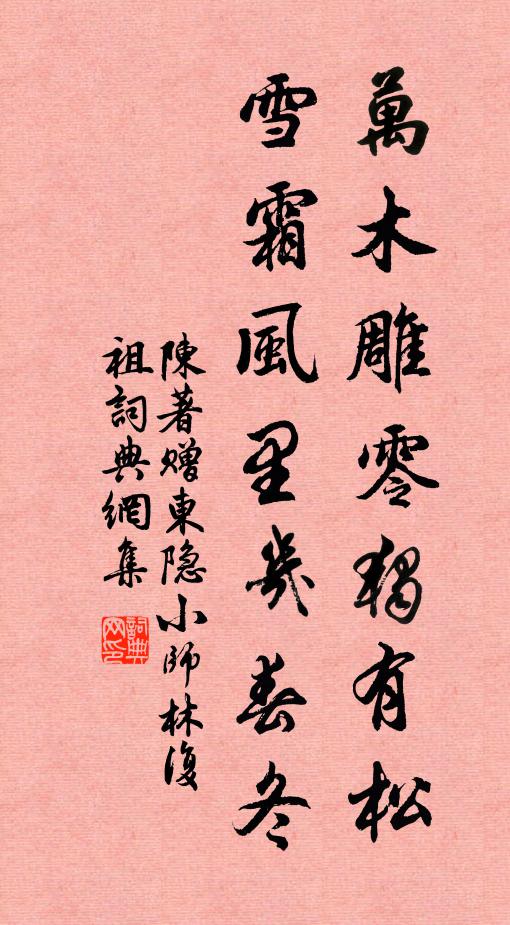 萬木雕零獨有松
雪霜風里幾春冬
陳著赠東隐小師林復
祖詞典網集
詞典网印